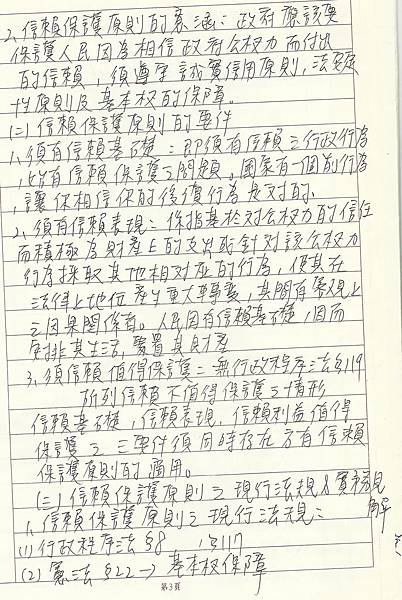 2. 信賴保護原則的意涵：政府應該要
保護人民因為相信政府公權力而付出
的信賴，須遵守誠實信用原則，法安定
性原則及基本權的保障。
(二) 信賴保護原則的要件
1. 須有信賴基礎：即須有信賴之行政行為
，始有信賴保護之問題。國家有一個前行為
，讓你相信你的後續行為是對的。
2. 須有信賴表現：係指基於對公權力的信任
而積極為財產上的支出或針對該公權力
行為採取其他相對應的行為，使其在
法律上地位產生重大轉變，其間有客觀上
之因果關係者。人民因有信賴基礎，因而
安排其生活，處置其財產
3. 須信賴值得保護：無行政程序法§119
所列信賴不值得保護之情形
信賴基礎，信賴表現，信賴利益值得
保護之三要件須同時存在方有信賴
保護原則的適用。
(三) 信賴保護原則之現行法規&實務見
解
1. 信賴保護原則之現行法規：
(1) 行政程序法§8、§117
(2) 憲法§22→基本權保障
第3頁